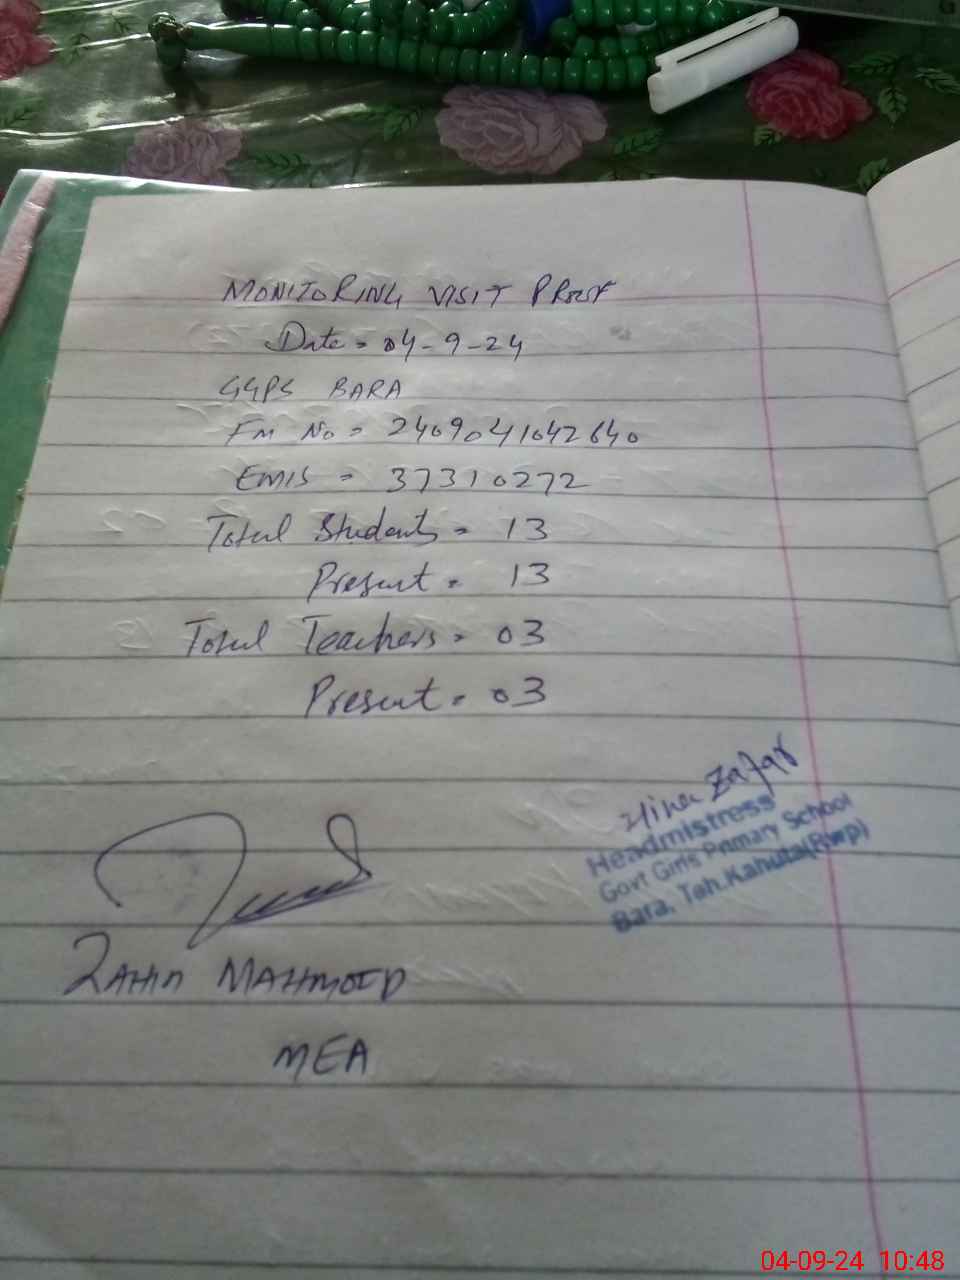 MONITORING VISIT PROOF
Date = 04-9-24
GGPS BARA
Fm No = 2409041042640
EMIS = 37310272
Total Students = 13
Present = 13
Total Teachers = 03
Present = 03
Hina Zafar
Headmistress
Govt Girls Primary School
Bara, Teh.Kahuta(Rwp)
MAHMOOD
MEA
04-09-24 10:48